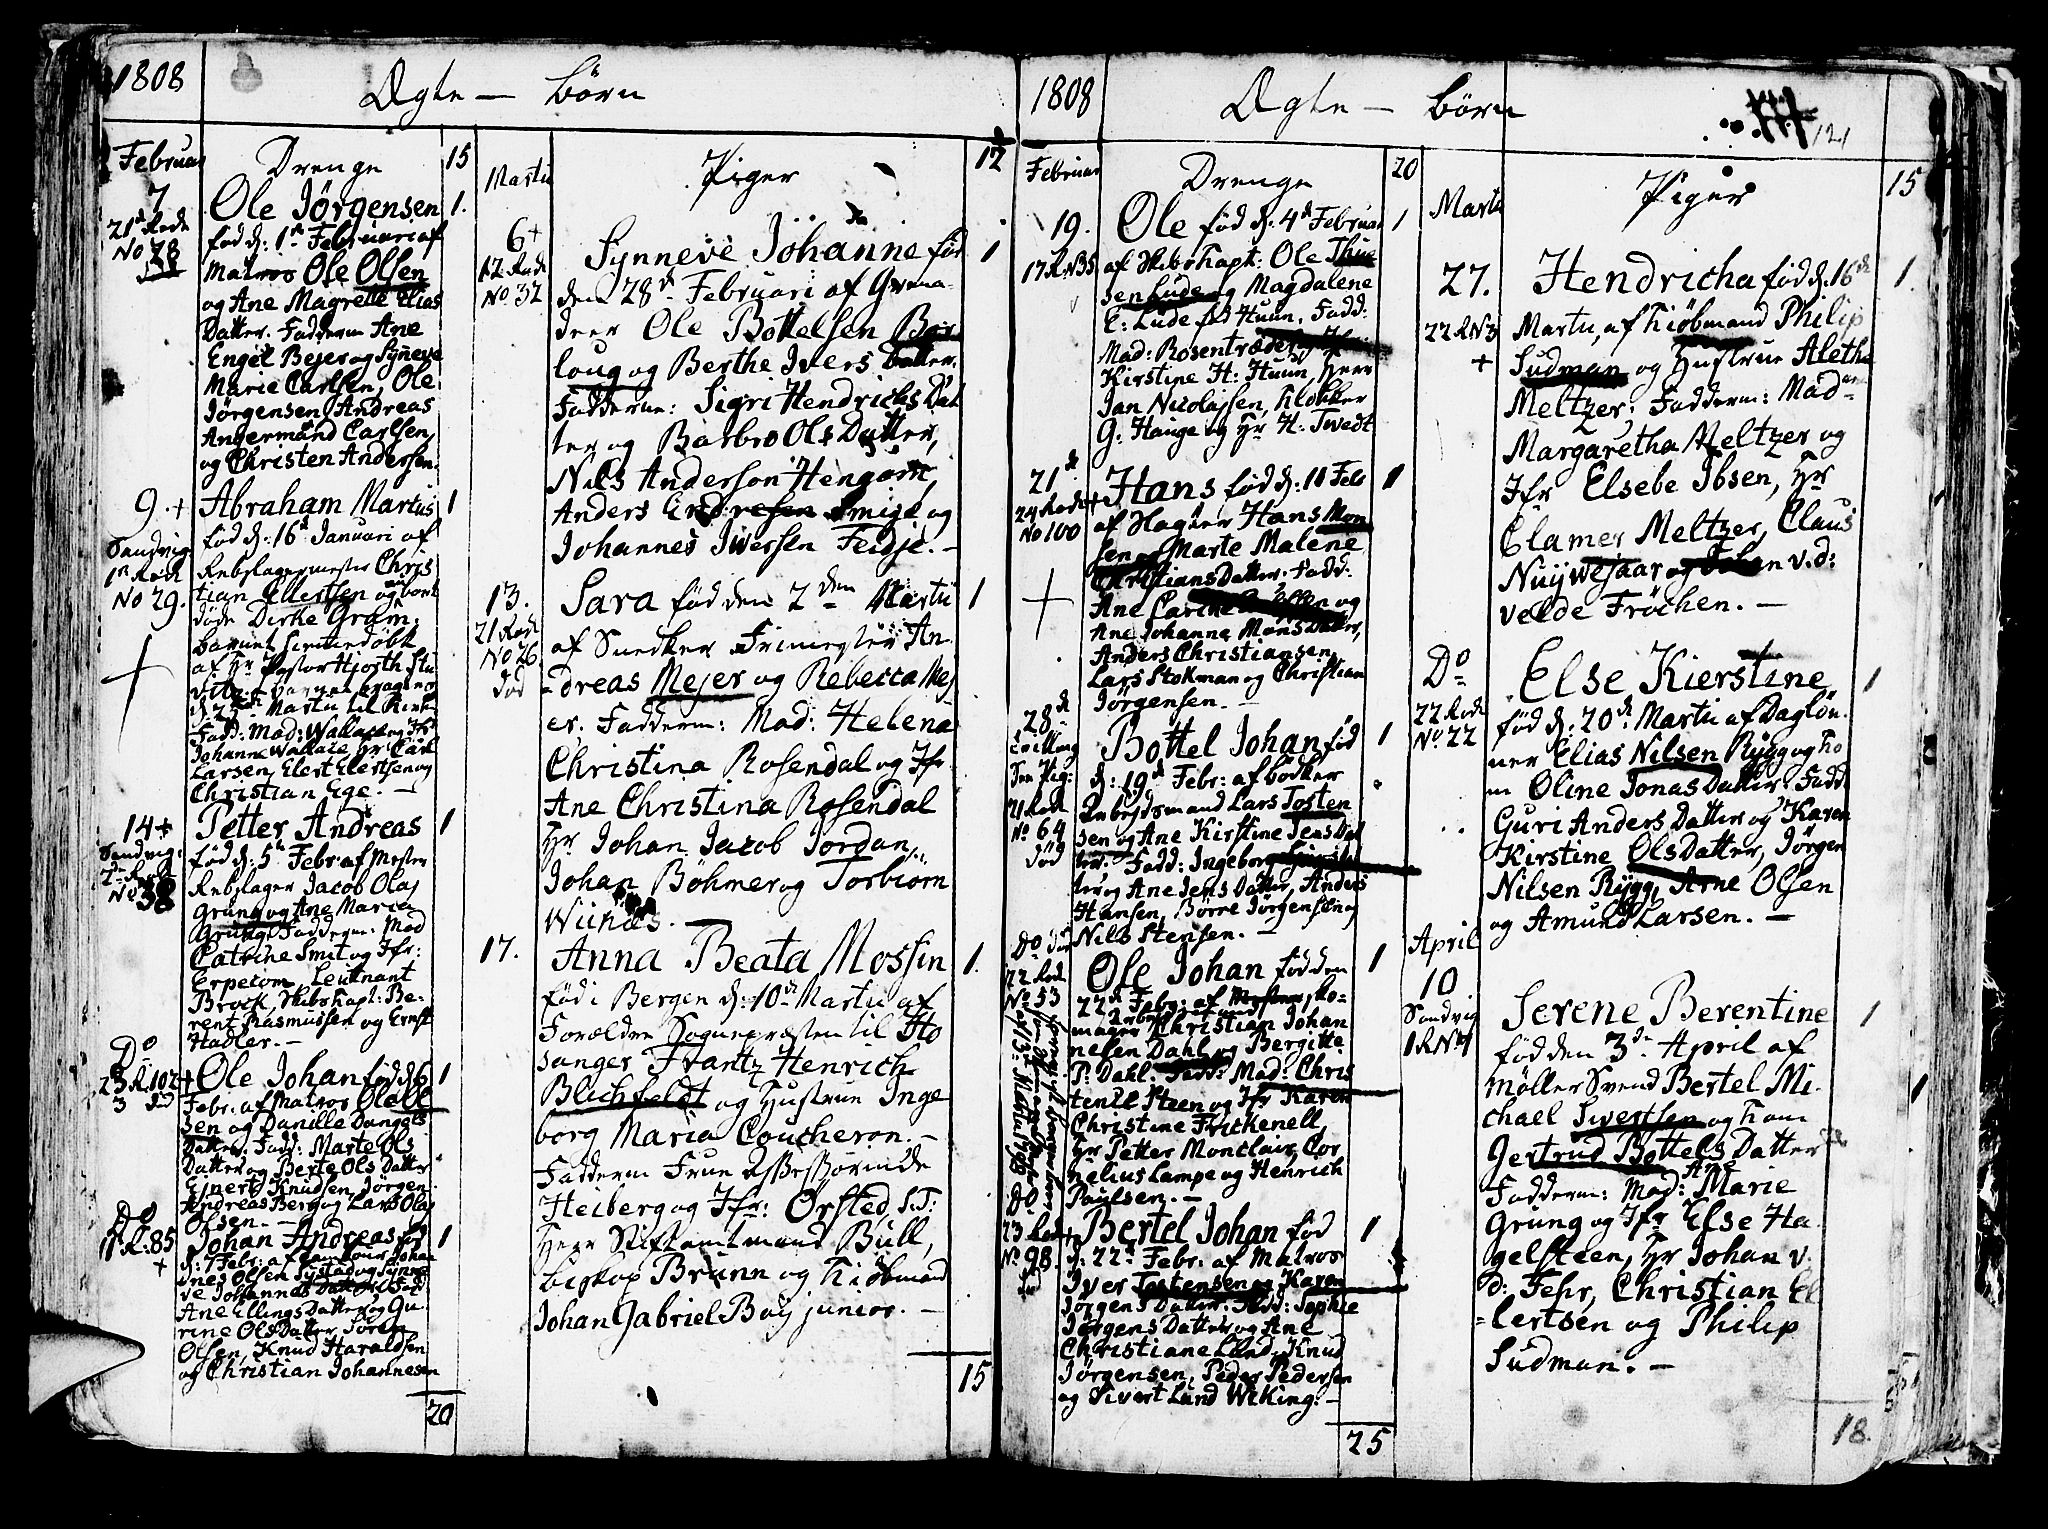 1808
Ægte — børn
Februar
Drenge
15
7
21de Rode
No 28
Ole Jørgensen 1.
født d: 1te Februari af
Matros Ole Olsen
og Ane Magrete Elias
Datter. Fadderne Ane
Engel Bejer og Syneve
Marie Carlsen, Ole
Jørgensen, Andreas
Angermand Carlsen,
og Christen Andersen.
9. +
Sandvig
1te Rode
No 29.
Abraham Martus 1
fød d: 16de Januari af
Rebslagermester Chris
tian Ellertsen og bort
døde Dirke Gram.
barnet hiemmedøbt
af Hr Pastor Hjorth
Martii til Kirke
Fadd: Mad: Wallace og Ifr
Johanne Wallace, Hr Carl
Larsen, Elert Elertsen og
Christian Ege. —
14 +
Sandvig:
2de Rode
No 38
Petter Andreas 1
fød d: 5te Febr: af Mester
Rebslager Jacob Olaj
Grung og Ane Maria
Grung. Fadderne: Mad
Catrine Smit og Ifr:
Erpecom, Leutnant
Brock, Skibskapt: Be-
rent Rasmussen og Ernst
Hadler. —
Do
23 R. 102 +
Ole Johan fød d. 6 1
Febr: af Matros Ole Ol
sen og Danille Daniels
Datter. Fadd: Marte Ols
Datter og Berte Ols Datter
Ejnert Knudsen, Jørgen
Andreas Berg og Lars Olaj
Olsen. —
Do
11 R. 85
+
Johan Andreas fød 1
d: 7 Febr: af Johan
nes Olsen Systad og Synne
ve Johannes Datter. Fadd
Ane Ellings Datter og Gu
rine Ols Datter, Søren
Olsen, Knud Haraldsen
og Christian Johannesen
20
Martii
Piger
12
6 +
12 Rode
No 32
Synneve Johanne fød 1
den 28de Februari af Grena-
deer Ole Bottelsen Ber
loug og Berthe Ivers Datter.
Fadderne: Sigri Hendrichs Dat
ter og Barbro Ols Datter,
Nils Anderson Hengom,
Anders Endresen Smige og
Johannes Iversen Feidje. —
13.
21 Rode
No 26
død
Sara fød den 2den Martii 1
af Snedker Frimester An-
dreas Mejer og Rebecca Mej
er. Fadderne: Mad: Helena
Christina Rosendal og Ifr.
Ane Christina Rosendal
Hr Johan Jacob Jordan,
Johan Böhmer og Torbiørn
Wiines. —
17.
Anna Beata Mossin 1.
fød i Bergen d: 10de Martii af
Forældre Sogneprästen til Ho
sanger Frantz Henrich
Blichfeldt og Hustrue Inge
borg Maria Coucheron. —
Fadderne Frue Assessorinde
Heiberg og Ifr: Ørsted, S.T:
Herr Stiftamtmand Bull,
biskop Brunn og Kiøbmand
Johan Gabriel Buij junior. —
15
1808
Ægte — børn
121
Februar
Drenge
20
19.
17 R. No 35
Ole fød d: 4de Februar 1
af Skibskapt: Ole Thue
sen Lude og Magdalene
E: Lude fød Huun. Fadd:
Mad: Rosentræder
Kirstine H: Huun, Herr
Jan Nicolassen, Klokker
G: Hauge og Hr H: Tvedt
21de
24 Rode +
No 100
Hans fød d: 10 Feb 1
af Hans Mon
sen og Marte Malene
Christians Datter. Fadd:
Ane Carine og
Ane Johanna Mons Datter,
Anders Christiansen,
Lars Stokman og Christian
Jørgensen. —
28de
21 Rode
No 64
død
Bottel Johan fød 1
d: 19de Febr: af bødker
Arbejdsmand Lars Tosten
sen og Ane Kirstine Jens Dat
ter. Fadd: Ingeborg
ter og Ane Jens Datter, Anders
Hansen, Børre Jørgensen og
Nils Stensen. —
Do
22 Rode
No 53
Ole Johan fød den 1
22de Febr: af Mester Sko-
mager Christian Johan
nesen Dahl og Bergitte
P: Dahl. Fadd: Mad: Chris
tence Steen og Ifr Karen
Christine Frickenell,
Hr Petter Monclair, Cor
nelius Lampe og Henrich
Paulsen. —
Do
23 Rode +
No 98.
Bertel Johan fød 1
d: 22de Febr: af Matros
Iver Tostensen og Karen
Jørgens Datter. Fadd: Sophie
Jørgens Datter og Ane
Christiane Lund, Knud
Jørgensen, Peder Pedersen
og Sivert Lund Wiking: —
25
Martii
Piger
15
27.
22 R No 3
+
Hendricha fød d: 16de 1.
Martii, af Kiøbmand Philip
Sudman og Hustrue Aletha
Meltzer; Fadderne: Mad=
Margaretha Meltzer og
Ifr Elsebe Ibsen, Hr
Clamer Meltzer, Claus
Nuijwejaar og Johan v. d:
velde Fröchen. —
Do
22 Rode
No 22
Else Kierstine 1
fød d: 20de Martii af Dagløn-
ner Elias Nilsen Rygg og Ko
ne Oline Jonas Datter. Fadd
Guri Anders Datter og Karen
Kirstine Ols Datter, Jørgen
Nilsen Rygg, Arne Olsen
og Amund Larsen. —
April
10
Sandvig
1 R No 1
Serene Berentine 1
fød den 3de April af
Møller Svend Bertel Mi-
chael Sivertsen og Kone
Gertrud Bottels Datter
Fadderne: Mad: Ane Marie
Grung og Ifr Else Ha
gelsteen, Hr Johan v.
d: Fehr, Christian El
lertsen og Philip
Sudman. —
18.